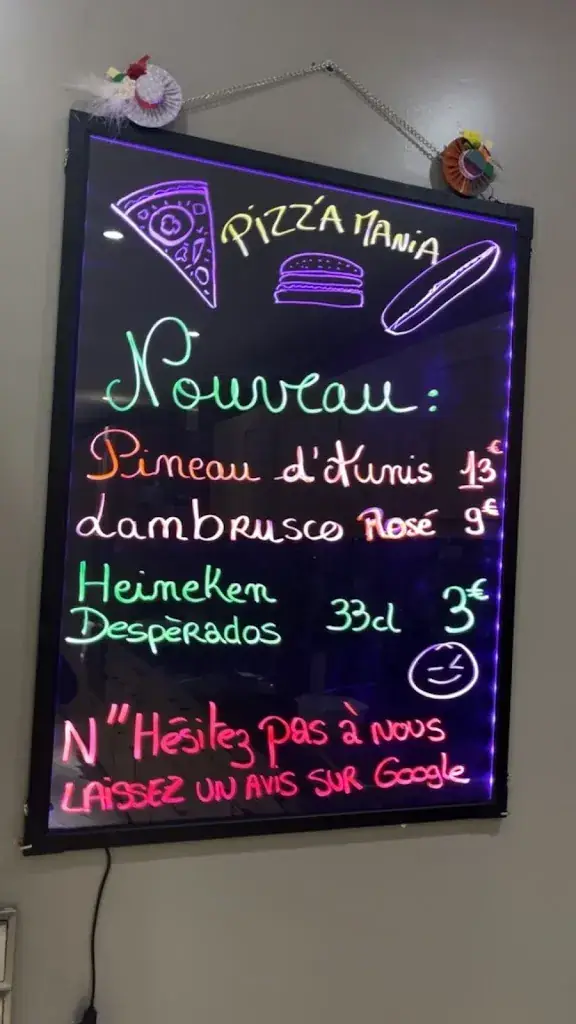 PIZZ'A MANIA
Nouveau :
Pineau d'Aunis 13€
Lambrusco Rosé 9€
Heineken
Despèrados 33cl 3€
N"Hésitez pas à nous
LAISSEZ UN AVIS SUR Google